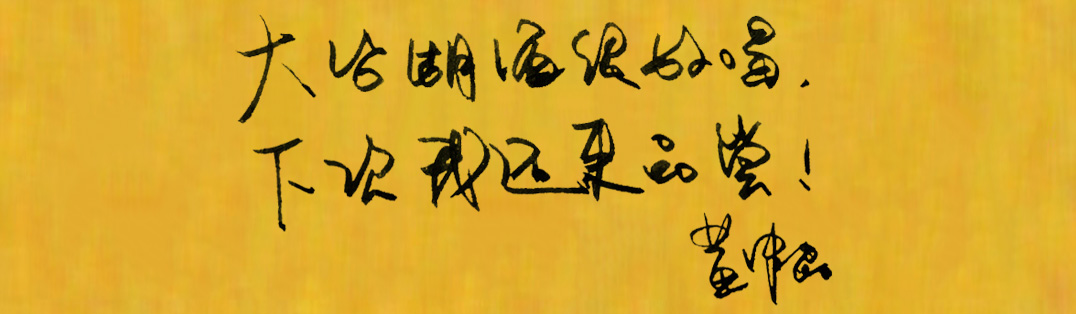 大冶湖酒很好喝.
下次我还来品尝!